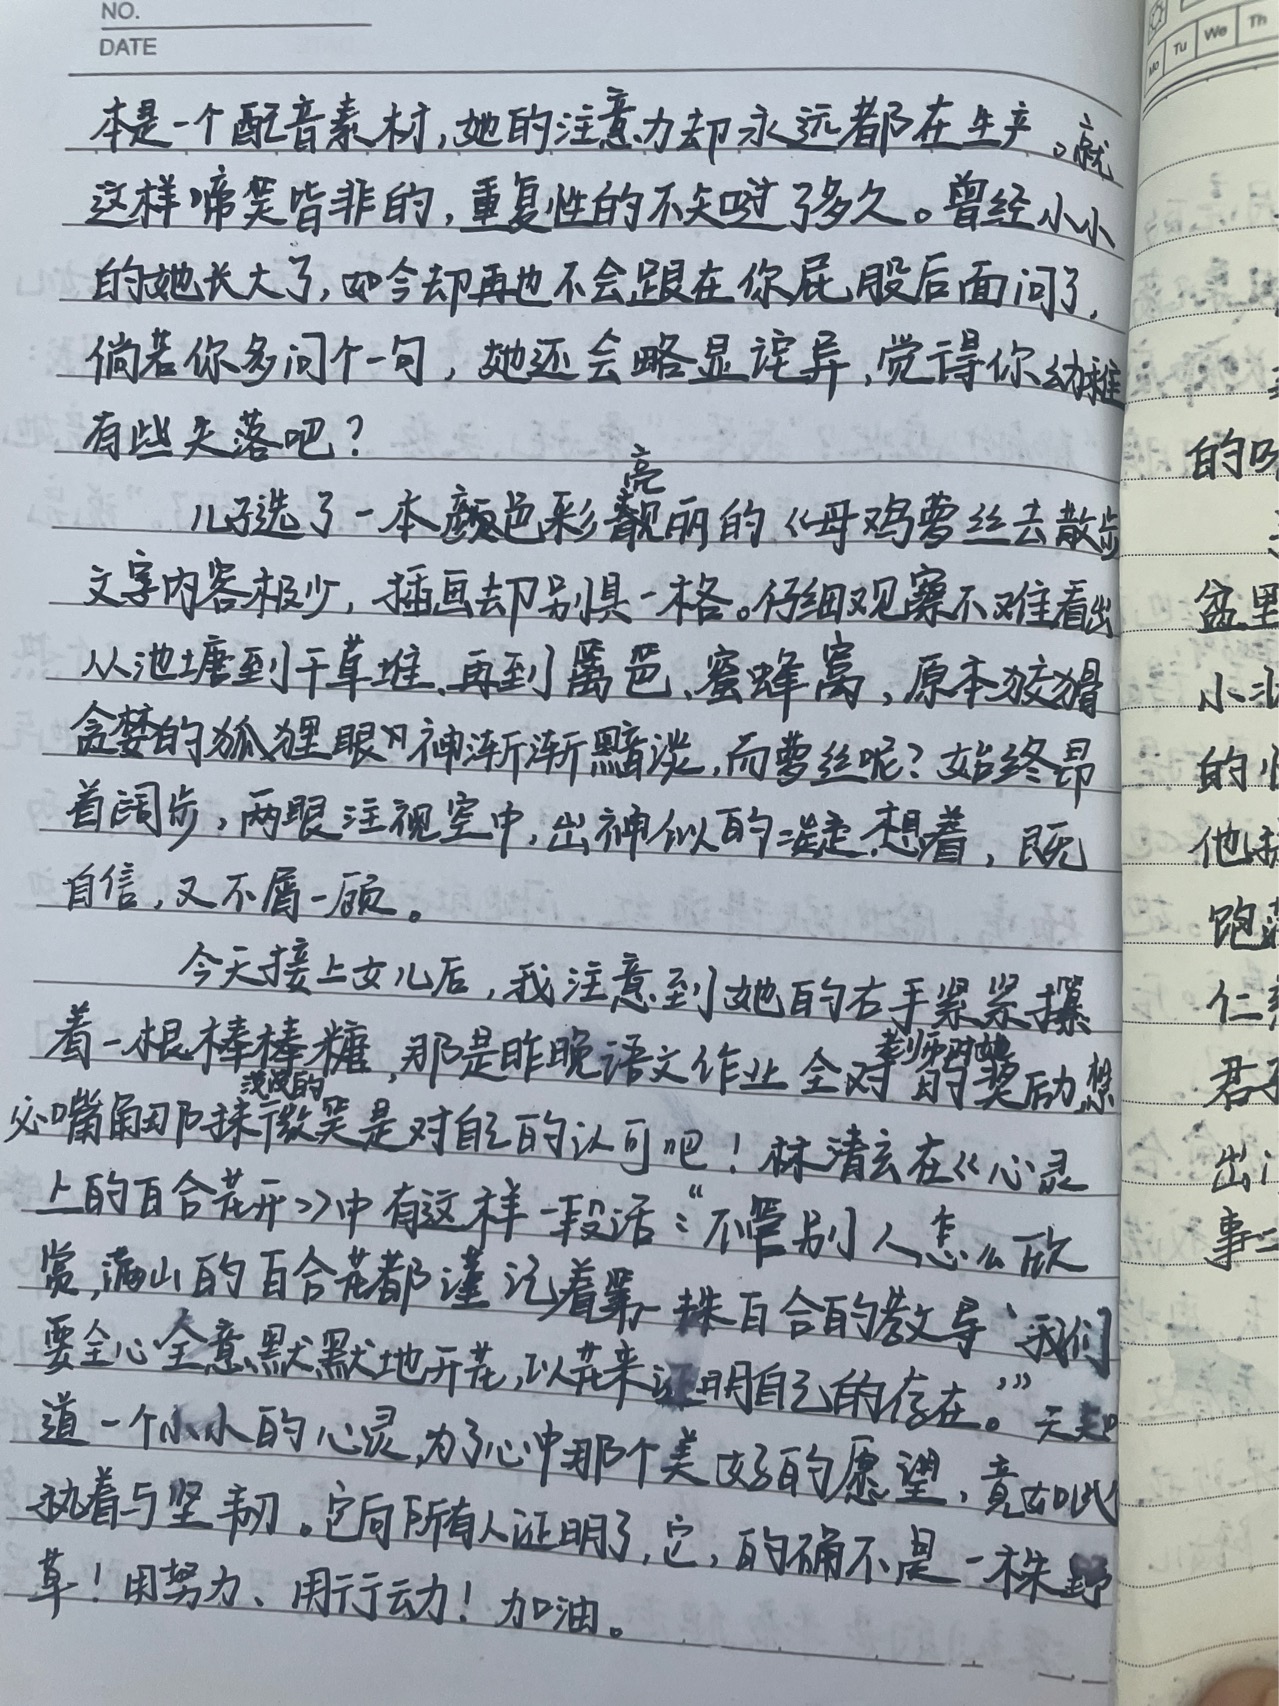 NO.
DATE
本是一个配音素材，她的注意力却永远都在生产。就
这样啼笑皆非的，重复性的不知过了多久。曾经小小
的她长大了，如今却再也不会跟在你屁股后面问了，
倘若你多问个一句，她还会略显诧异，觉得你幼稚
有些失落吧？
儿子选了一本颜色彩亮靓丽的《母鸡萝丝去散步
文字内容极少，插画却别具一格。仔细观察不难看出
从池塘到干草堆、再到篱笆、蜜蜂窝，原本狡猾
贪婪的狐狸眼神渐渐黯淡，而萝丝呢？始终昂
首阔步，两眼注视空中，出神似的想着，既
自信，又不屑一顾。
今天接上女儿后，我注意到她的右手紧紧攥
着一根棒棒糖，那是昨晚语文作业全对老师对她的奖励，想
必嘴角那抹淡淡的微笑是对自己的认可吧！林清玄在《心灵
上的百合花开》中有这样一段话："不管别人怎么欣
赏，满山的百合花都谨记着第一株百合的教导'我们
要全心全意默默地开花，以花来证明自己的存在。'"天知
道一个小小的心灵，为了心中那个美好的愿望，竟如此
执着与坚韧。它向所有人证明了，它，的确不是一株野
草！用努力、用行动！加油。
Mo Tu We Th
的
盆里
小
的
他
饱
仁
君
出
事